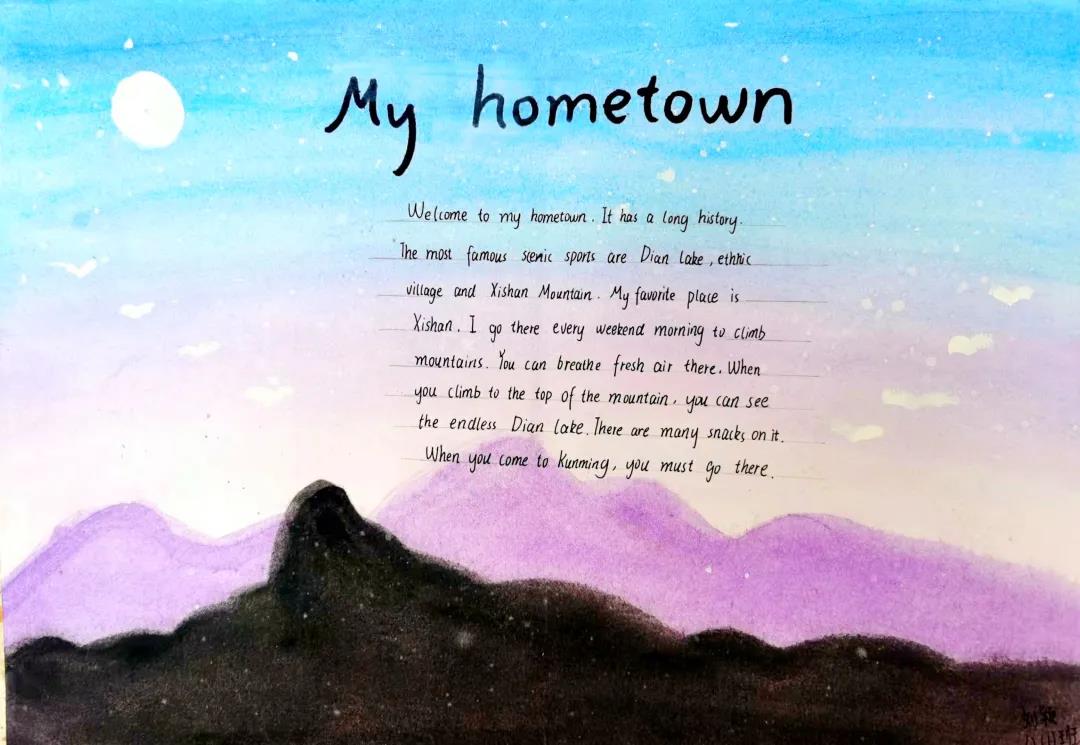 My hometown
Welcome to my hometown. It has a long history.
The most famous scenic sports are Dian Lake, ethnic
village and Xishan Mountain. My favorite place is
Xishan. I go there every weekend morning to climb
mountains. You can breathe fresh air there. When
you climb to the top of the mountain, you can see
the endless Dian Lake. There are many snacks on it.
When you come to Kunming, you must go there.